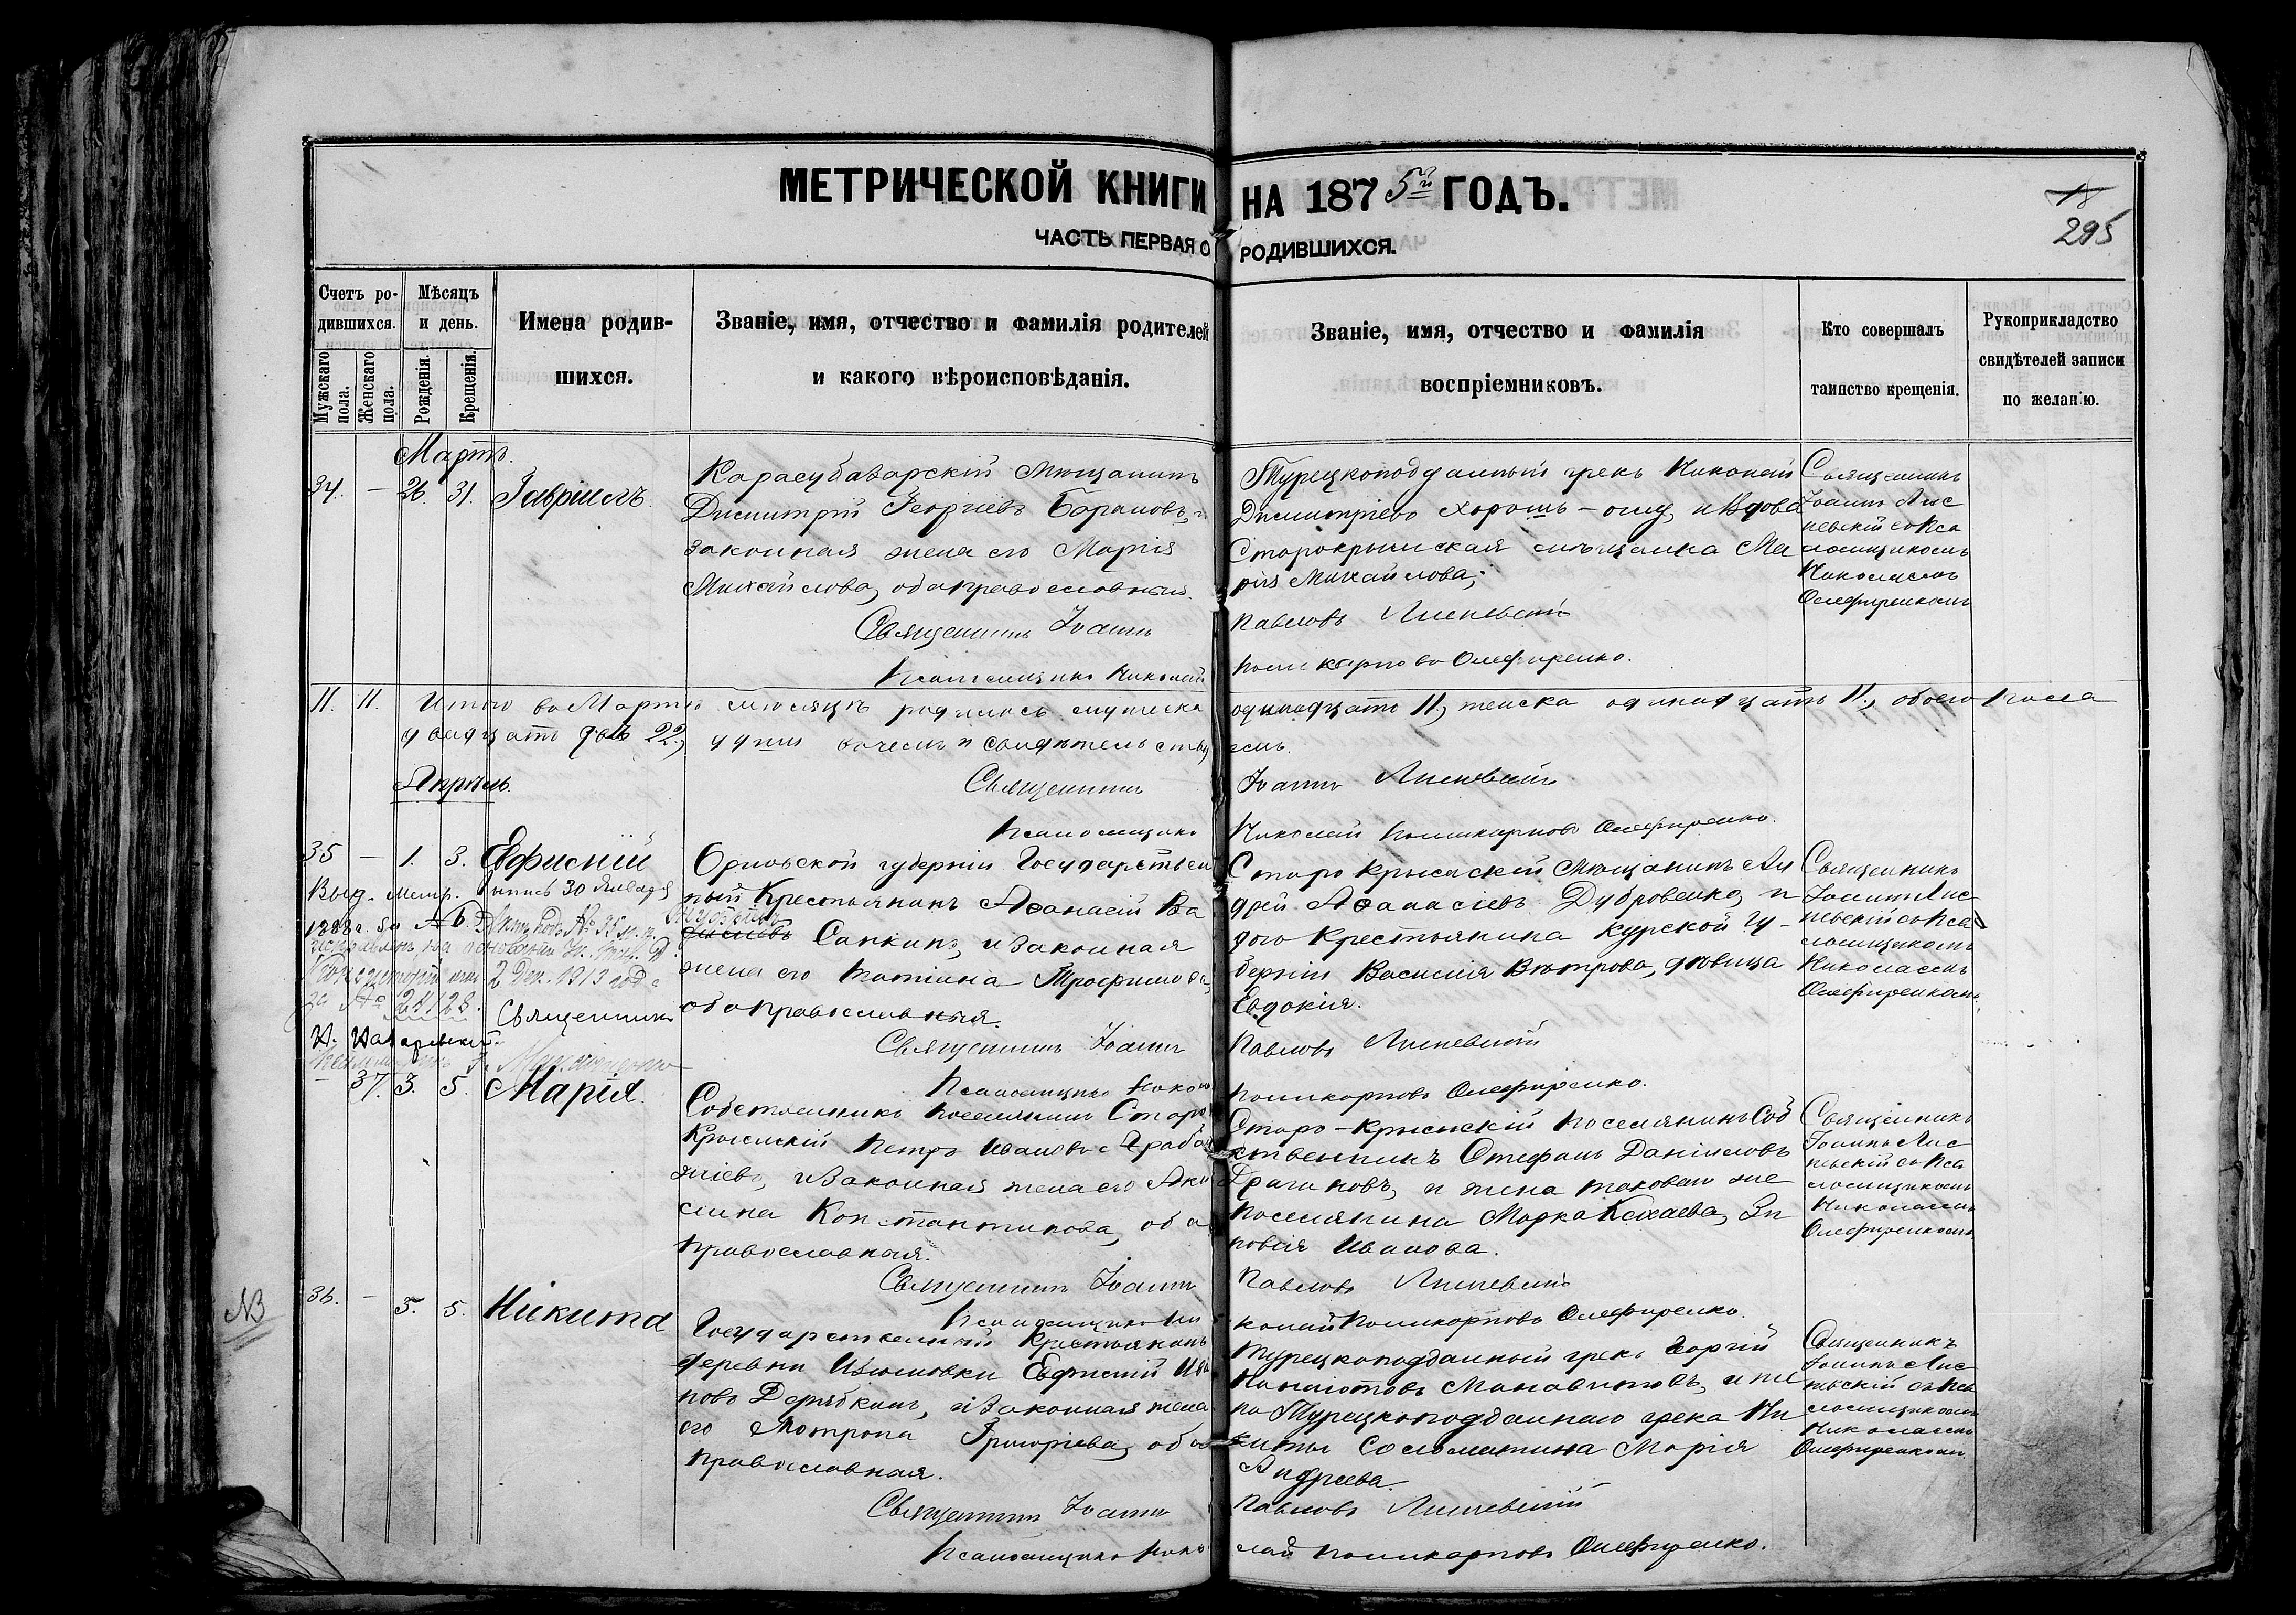 МЕТРИЧЕСКОЙ КНИГИ НА 1875й ГОДЪ.
ЧАСТЬ ПЕРВАЯ О РОДИВШИХСЯ.
18
295
Счетъ ро-
дившихся.
Мужскаго
пола.
Женскаго
пола.
Мѣсяцъ
и день.
Рожденія.
Крещенія.
Имена родив-
шихся.
Званіе, имя, отчество и фамилія родителей
и какого вѣроисповѣданія.
Званіе, имя, отчество и фамилія
воспріемниковъ.
Кто совершалъ
таинство крещенія.
Рукоприкладство
свидѣтелей записи
по желанію.
Мартъ.
34. — 26. 31. Гавріилъ.
Карасубазарскій Мѣщанинъ
Димитрій Георгіевъ Барановъ, и
законная жена его Марія
Михайлова, оба православные.
Священникъ Іоаннъ
Псаломщикъ Николай
Турецкоподданный грекъ Николай
Димитріевъ Хорошъ-оглу, и вдова
Старокрымская мѣщанка Ма
рія Михайлова;
Павловъ Лисневскій
Поликарповъ Олефиренко.
Священникъ
Іоаннъ Лис
невскій съ Пса
ломщикомъ
Николаемъ
Олефиренкомъ
11. 11. Итого въ Мартѣ мѣсяцѣ родилось мужеска одинадцать 11, женска одинадцать 11, обоего пола
двадцать два 22, души въ чемъ и свидѣтельствуемъ.
Священникъ Іоаннъ Лисневскій
Псаломщикъ Николай Поликарповъ Олефиренко.
Апрѣль.
35 — 1. 3. Евфисній
Выд. метр. выпись 30 Января
1888 г. за № 6.
2 Дек. 1913 года
за № 24128.
Священникъ
Орловской губерніи Государствен
ный Крестьянинъ Аѳанасій Ва
сильевъ Сапкинъ, и законная
жена его Татіана Трофимова,
оба православныя.
Священникъ Іоаннъ
Псаломщикъ Нико
Старо Крымскій Мѣщанинъ Ан
дрей Аѳанасіевъ Дубровенко, и
дого Крестьянина Курской гу-
берніи Василія Вѣтрова, дѣвица
Евдокія.
Павловъ Лисневскій
Поликарповъ Олефиренко.
Священникъ
Іоаннъ Лис
невскій съ Пса
ломщикомъ
Николаемъ
Олефиренкомъ.
— 37. 3. 5. Марія.
Собственникъ поселянинъ Старо
Крымскій Петръ Ивановъ Араба
жіевъ, и законная жена его Аки
лина Константинова, оба
православныя.
Священникъ Іоаннъ
Псаломщикъ Ни
Старо-Крымскій поселянинъ Соб
ственникъ Стефанъ Даніиловъ
Драгиновъ, и жена таковаго же
поселянина Марка Кехаева, Зи
новія Иванова.
Павловъ Лисневскій
колай Поликарповъ Олефиренко.
Священникъ
Іоаннъ Лис
невскій съ Пса
ломщикомъ
Николаемъ
Олефиренкомъ
NB
36. — 5. 5. Никита
Государственный Крестьянинъ
деревни Изюмовки Евфисній Ива
новъ Дерябкинъ, и законная жена
его Матрона Григоріева, оба
православная.
Священникъ Іоаннъ
Псаломщикъ Нико
Турецкоподданный грекъ Георгій
Панаіотовъ Манавитовъ, и же
на Турецкоподданнаго грека Ни
киты Соломатина Марія
Андреева.
Павловъ Лисневскій
лай Поликарповъ Олефиренко.
Священникъ
Іоаннъ Лис
невскій съ Пса
ломщикомъ
Николаемъ
Олефиренкомъ.